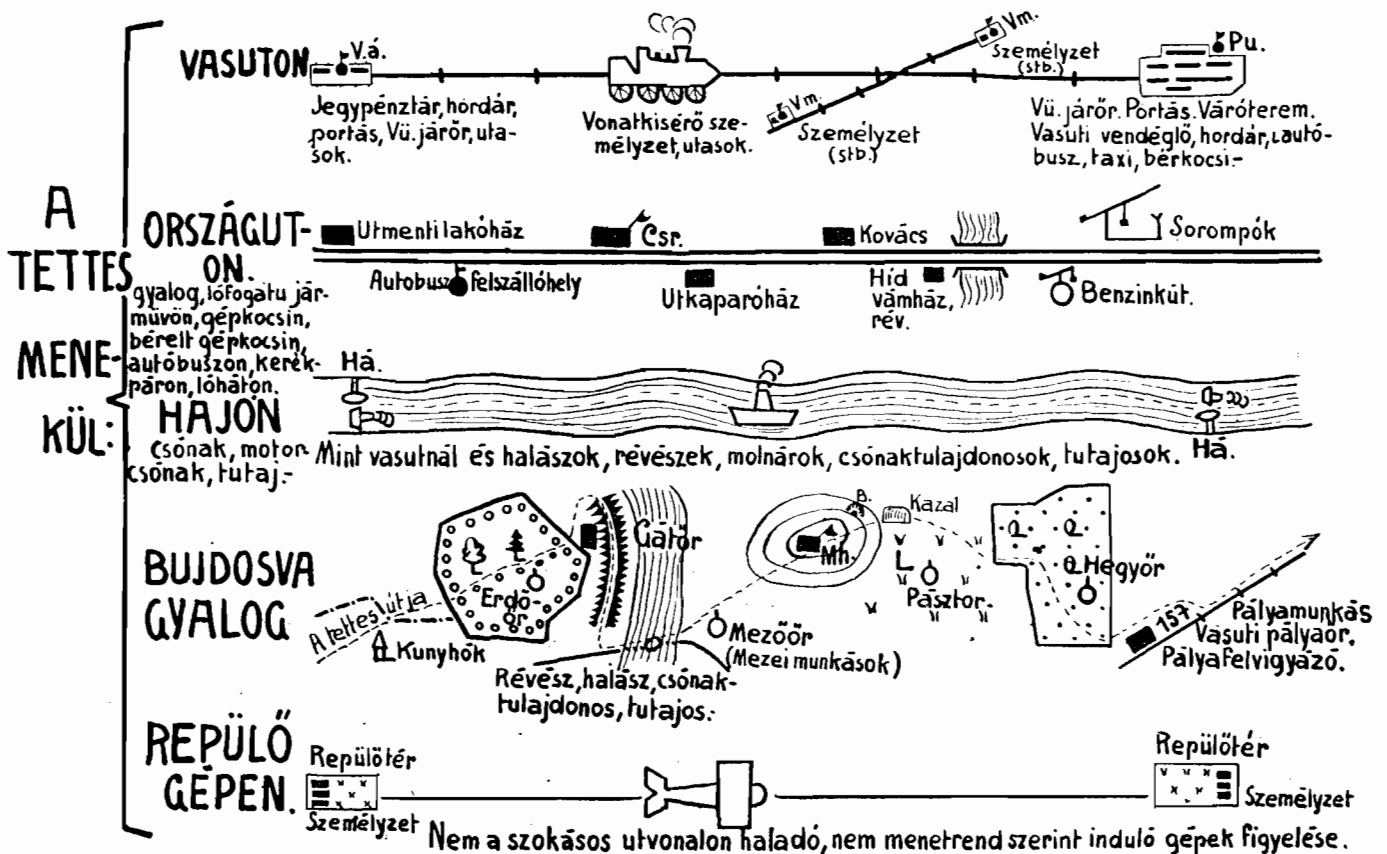 A
TETTES
MENE-
KÜL:
VASUTON
V.á.
Jegypénztár, hordár,
portás, Vü. járőr, uta-
sok.
Vonatkisérő sze-
mélyzet, utasok.
Vm.
Személyzet
(stb.)
Vm.
Személyzet
(stb.)
Pu.
Vü. járőr. Portás. Váróterem.
Vasuti vendéglő, hordár, autó-
busz, taxi, bérkocsi.-
ORSZÁGUT-
ON.
gyalog, lófogatu jár-
művön, gépkocsin,
bérelt gépkocsin,
autóbuszon, kerék-
páron, lóháton.
Utmenti lakóház
Csr.
Kovács
Sorompók
Autobusz felszállóhely
Utkaparóház
Híd
vámház,
rév.
Benzinkút.
HAJÓN
csónak, motor-
csónak, tutaj.-
Há.
Há.
Mint vasutnál és halászok, révészek, molnárok, csónaktulajdonosok, tutajosok.
BUJDOSVA
GYALOG
A tettes útja
Kunyhók
Erdő-
őr
Gátőr
Révész, halász, csónak-
tulajdonos, tutajos.-
Mezőőr
(Mezei munkások)
Mh.
B.
Kazal
Pásztor.
Hegyőr
157
Pályamunkás
Vasuti pályaőr,
Pályafelvigyázó.
REPÜLŐ
GÉPEN.
Repülőtér
Személyzet
Repülőtér
Személyzet
Nem a szokásos utvonalon haladó, nem menetrend szerint induló gépek figyelése.